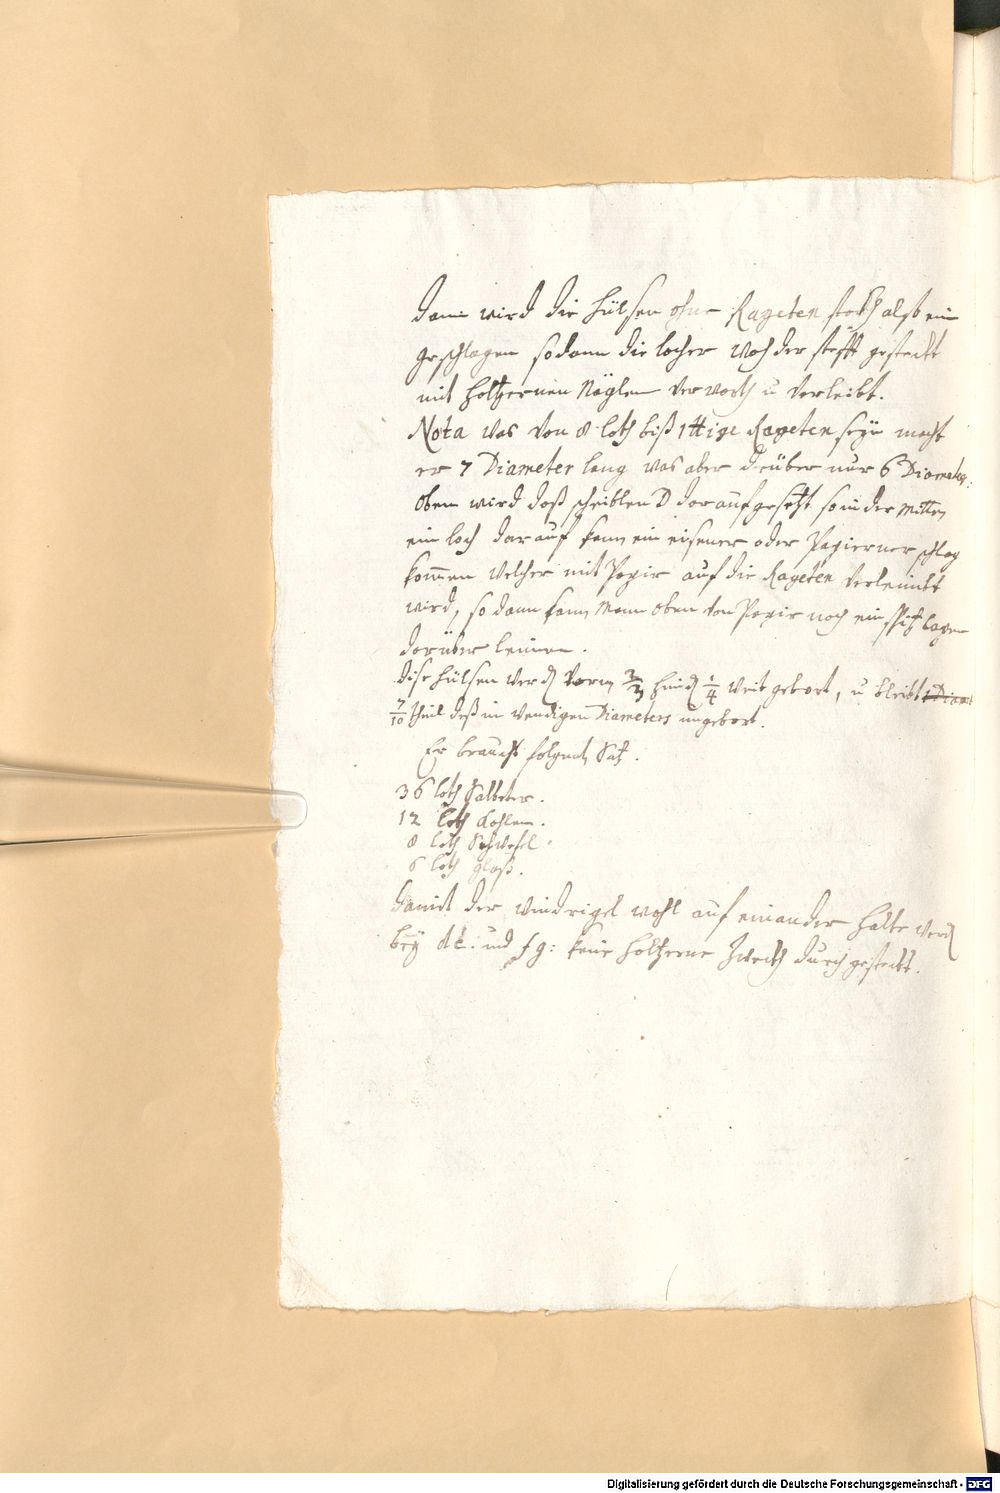 dann wird die hülsen ohne Rageten stokh alß ein
geschlagen sodann die locher wo der stefft gesteckt
mit holtzernen Näglen verworth u verleibt.
Nota was von 8 loth biß 1 ttige Rageten seyn macht
er 7 Diameter lang was aber drüber nur 6 Diameter:
oben wird daß scheiblen D darauf gesetzt so in der Mitten
ein loch darauf kann ein eisener oder Papierner schlag
kommen welcher mit Papir auf die Rageten verleimbt
wird, so dann kann Mann oben von Papir noch ein
darüber leimen.
dise hülsen werd vorn 2/3 hind 1/4 weit gebort, u bleibt 1 Diamet
7/10 theil deß in wendigen Diameters ungebort.
Er braucht folgend Satz.
36 loth Salbeter.
12 loth Kohlen.
8 loth Schwefel.
6 loth glaß.
damit der windrigel wohl auf einander halte werd
bey und fg: holtzerne Zweckh durch gesteckt.
Digitalisierung gefördert durch die Deutsche Forschungsgemeinschaft - DFG